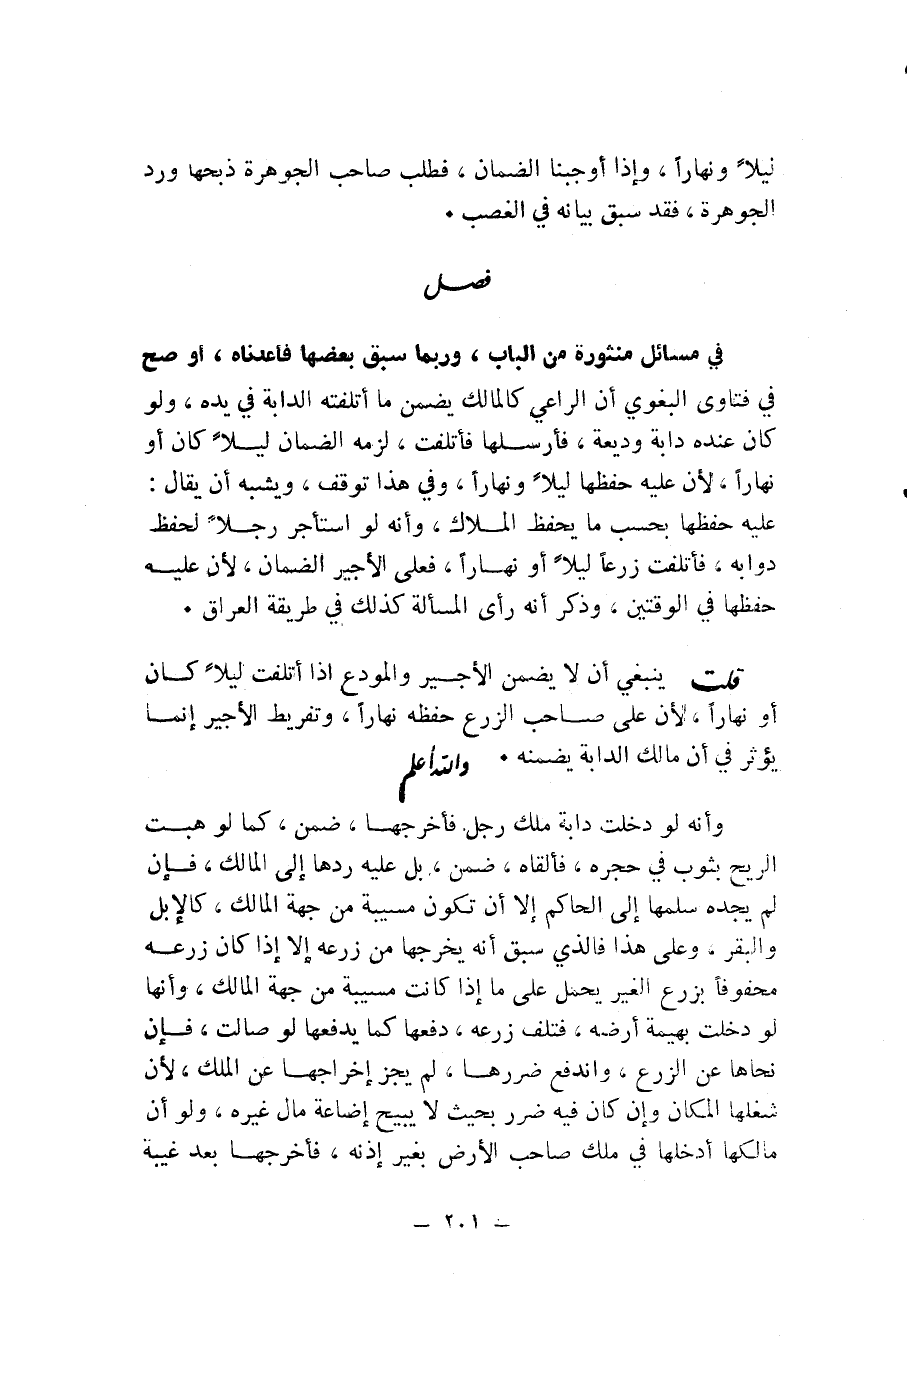 ليلاً ونهاراً ، وإذا أوجبنا الضمان ، فطلب صاحب الجوهرة ذبحها ورد
الجوهرة ، فقد سبق بيانه في الغصب .
فصل
في مسائل منثورة من الباب ، وربما سبق بعضها فأعدناه ، أو صح
في فتاوى البغوي أن الراعي كالمالك يضمن ما أتلفته الدابة في يده ، ولو
كان عنده دابة وديعة ، فأرسلها فأتلفت ، لزمه الضمان ليلاً كان أو
نهاراً ، لأن عليه حفظها ليلاً ونهاراً ، وفي هذا توقف ، ويشبه أن يقال :
عليه حفظها بحسب ما يحفظ الملاك ، وأنه لو استأجر رجلاً لحفظ
دوابه ، فأتلفت زرعاً ليلاً أو نهاراً ، فعلى الأجير الضمان ، لأن عليه
حفظها في الوقتين ، وذكر أنه رأى المسألة كذلك في طريقة العراق .
قلت ينبغي أن لا يضمن الأجير والمودع اذا أتلفت ليلاً كان
أو نهاراً ، لأن على صاحب الزرع حفظه نهاراً ، وتفريط الأجير إنما
يؤثر في أن مالك الدابة يضمنه . والله أعلم
وأنه لو دخلت دابة ملك رجل فأخرجها ، ضمن ، كما لو هبت
الريح بثوب في حجره ، فألقاه ، ضمن ، بل عليه ردها إلى المالك ، فإن
لم يجده سلمها إلى الحاكم إلا أن تكون مسيبة من جهة المالك ، كالإبل
والبقر ، وعلى هذا فالذي سبق أنه يخرجها من زرعه إلا إذا كان زرعه
محفوفاً بزرع الغير يحمل على ما إذا كانت مسيبة من جهة المالك ، وأنها
لو دخلت بهيمة أرضه ، فتلف زرعه ، دفعها كما يدفعها لو صالت ، فإن
نحاها عن الزرع ، واندفع ضررها ، لم يجز إخراجها عن الملك ، لأن
شغلها المكان وإن كان فيه ضرر بحيث لا يبيح إضاعة مال غيره ، ولو أن
مالكها أدخلها في ملك صاحب الأرض بغير إذنه ، فأخرجها بعد غيبة
– ٢٠١ –